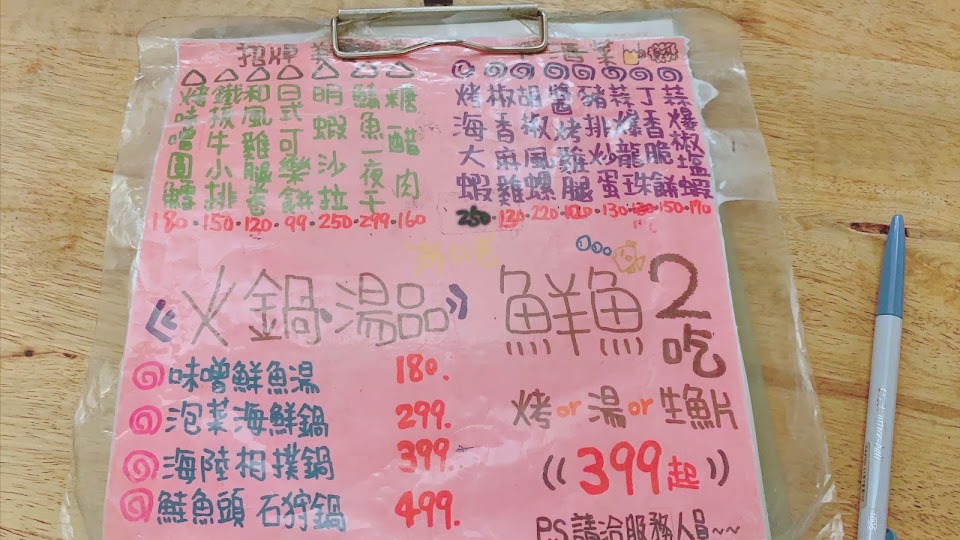 招牌
烤味噌圓鱈
鐵板牛小排
和風雞腿煮
日式可樂餅
明蝦沙拉
鯖魚一夜干
糖醋肉
180.150.120.99.250.299.160
酒菜
烤海大蝦
椒香麻雞
胡椒風螺
醬烤雞腿
豬排炒蛋
蒜爆龍珠
丁香脆餅
蒜爆椒塩蝦
250.120.220.130.150.170
《火鍋.湯品》
味噌鮮魚湯 180.
泡菜海鮮鍋 299.
海陸相撲鍋 399.
鮭魚頭石狩鍋 499.
鮮魚2吃
烤or湯or生魚片
((399起))
P.S請洽服務人員~~